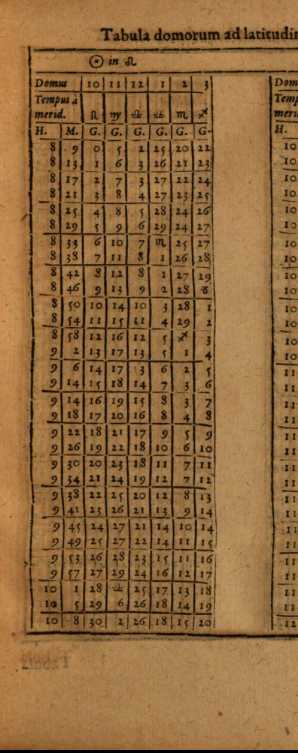 Tabula domorum ad latitudin
☉ in ♌
Domus 10 11 12 1 2 3
Tempus à
merid. ♌ ♍ ♎ ♎ ♏ ♐
H. M. G. G. G. G. G. G.
8 9 0 5 2 25 20 22
8 13 1 6 3 26 21 23
8 17 2 7 3 27 22 24
8 21 3 8 4 27 23 25
8 25 4 8 5 28 24 26
8 29 5 9 6 29 24 27
8 33 6 10 7 ♏ 25 27
8 38 7 11 8 1 26 28
8 42 8 12 8 1 27 29
8 46 9 13 9 2 28 ♑
8 50 10 14 10 3 28 1
8 54 11 15 11 4 29 2
8 58 12 16 12 5 ♐ 3
9 2 13 17 13 5 1 4
9 6 14 17 13 6 2 5
9 14 15 18 14 7 3 6
9 14 16 19 15 8 3 7
9 18 17 20 16 8 4 8
9 22 18 21 17 9 5 9
9 26 19 22 18 10 6 10
9 30 20 23 18 11 7 11
9 34 21 24 19 12 7 12
9 38 22 25 20 12 8 13
9 41 23 26 21 13 9 14
9 45 24 27 21 14 10 14
9 49 25 27 22 14 11 15
9 53 26 28 23 15 11 16
9 57 27 29 24 16 12 17
10 1 28 ♎ 25 17 13 18
10 5 29 6 26 18 14 19
10 8 30 2 26 18 15 20